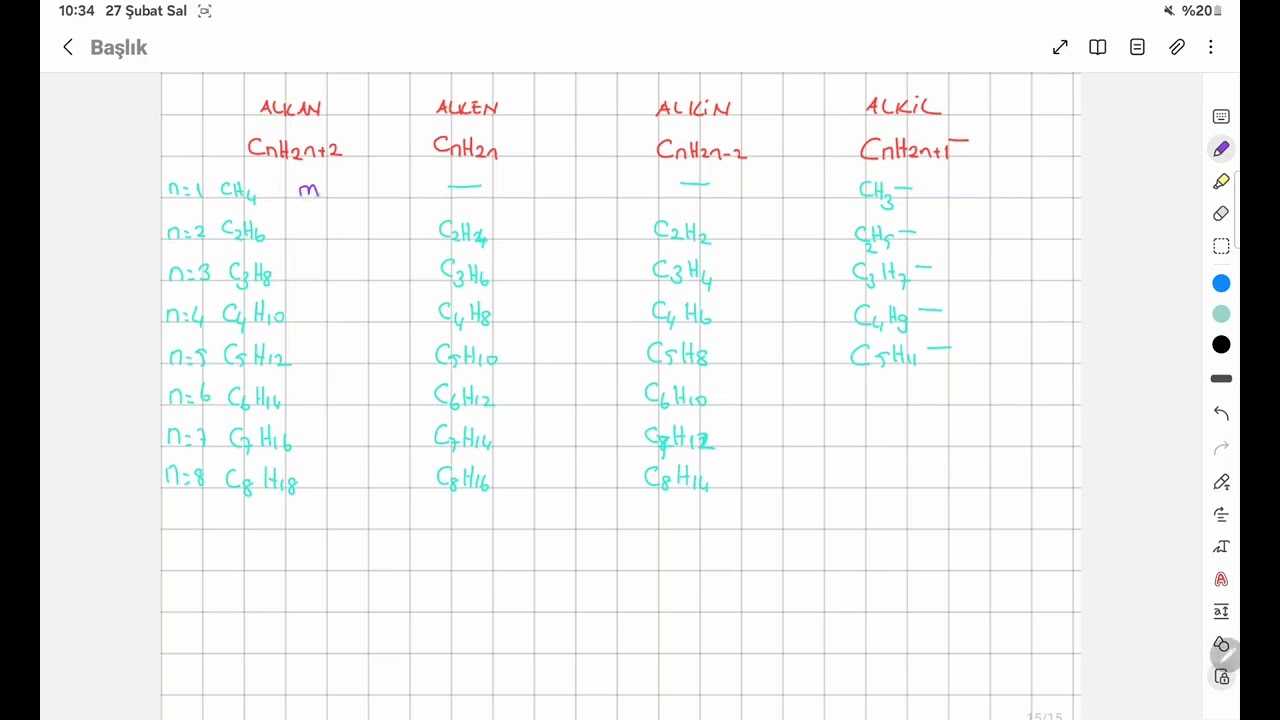 10:34 27 Şubat Sal %20
Başlık
ALKAN ALKEN ALKİN ALKİL
CnH2n+2 CnH2n CnH2n-2 CnH2n+1 —
n=1 CH4 m — — CH3 —
n=2 C2H6 C2H4 C2H2 C2H5 —
n=3 C3H8 C3H6 C3H4 C3H7 —
n=4 C4H10 C4H8 C4H6 C4H9 —
n=5 C5H12 C5H10 C5H8 C5H11 —
n=6 C6H14 C6H12 C6H10
n=7 C7H16 C7H14 C7H12
n=8 C8H18 C8H16 C8H14
15/15